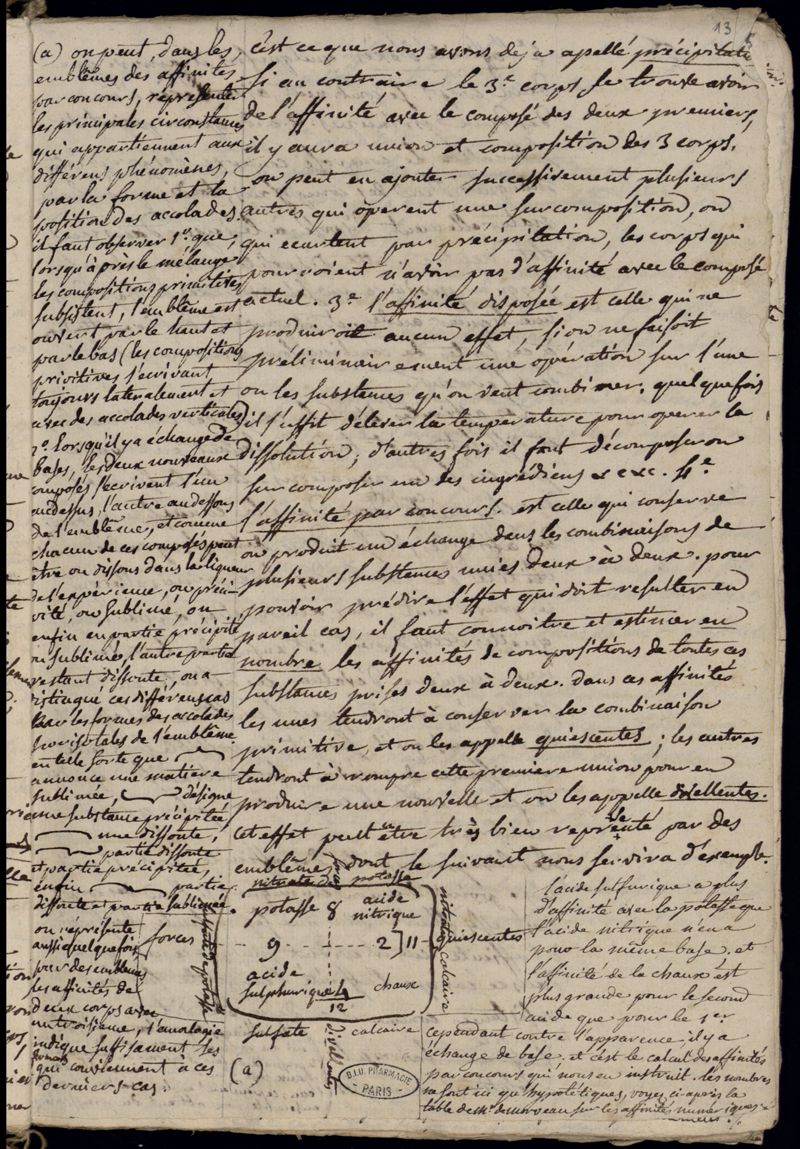 13
c'est ce que nous avons deja apellé précipitat
si au contraire le 3.e corps se trouve avoir
de l'affinité avec le composé des deux premiers,
il y aura union et composition des 3 corps.
on peut en ajouter successivement plusieurs
autres qui operent une surcomposition, ou
qui ecartent par précipitation, les corps qui
pourroient n'avoir pas d'affinité avec le composé
actuel. 3.e l'affinité disposée est celle qui ne
produiroit aucun effet, si on ne faisoit
préliminairement une opération sur l'une
ou les substances qu'on veut combiner. quelquefois
il suffit d'élever la temperature pour operer la
dissolution; d'autres fois il faut décomposer ou
surcomposer un des ingrédiens &c &c. 4.e
l'affinité par concours. est celle qui conserve
ou produit un échange dans les combinaisons de
plusieurs substances unies deux à deux. pour
pouvoir prédire l'effet qui doit resulter en
pareil cas, il faut connoitre et estimer en
nombre les affinités de compositions de toutes ces
substances prises deux à deux. dans ces affinités
les unes tendront à conserver la combinaison
primitive, et on les appelle quiescentes; les autres
tendront à rompre cette premiere union pour en
produire une nouvelle et on les appelle divellentes.
cet effet peut être très bien representé par des
emblêmes dont le suivant nous servira d'exemple.
(a) on peut, dans les
emblêmes des affinités
par concours, représenter
les principales circonstances
qui appartiennent aux
différens phénomènes,
par la forme et la
position des accolades.
il faut observer 1.o que,
lorsqu'après le mélange
les compositions primitives
subsistent, l'emblême est
ouvert par le haut et
par le bas (les compositions
primitives s'ecrivant
toujours lateralement et
avec des accolades verticales)
2.o lorsqu'il y a échange de
bases, les deux nouveaux
composés s'ecrivent l'un
au dessus, l'autre au dessous
de l'emblême, et comme
chacun de ces composés peut
être ou dissous dans la liqueur
de l'expérience, ou préci-
pité, ou sublimé, ou
enfin en partie précipité
ou sublimé, l'autre partie
restant dissoute, on a
distingué ces différens cas
par les formes des accolades
horisontales de l'emblême
en telle sorte que
annonce une matiere
sublimée, désigne
une substance précipitée
une dissoute,
partie dissoute
et partie précipitée,
enfin partie
dissoute et partie sublimée.
on représente
aussi quelquefois
par des emblêmes
les affinités de
deux corps avec
un troisieme, l'analogie
indique suffisament les
formes
qui conviennent à ces
derniers cas.
nitrate de potasse
potasse 8 acide nitrique
forces 9 2 } 11 quiescentes
acide sulphurique 4 chaux
12
sulfate de potasse
nitrate calcaire
sulfate calcaire
divellentes
(a)
l'acide sulfurique a plus
d'affinité avec la potasse que
l'acide nitrique n'en a
pour la même base. et
l'affinité de la chaux est
plus grande pour le second
acide que pour le 1.er
cependant contre l'apparence il y a
échange de base. et c'est le calcul des affinités
par concours qui nous en instruit. les nombres
ne sont ici qu'hypotétiques, voyez ci-après la
table de M.r de morveau sur les affinités numeriques
B.I.U. PHARMACIE
PARIS